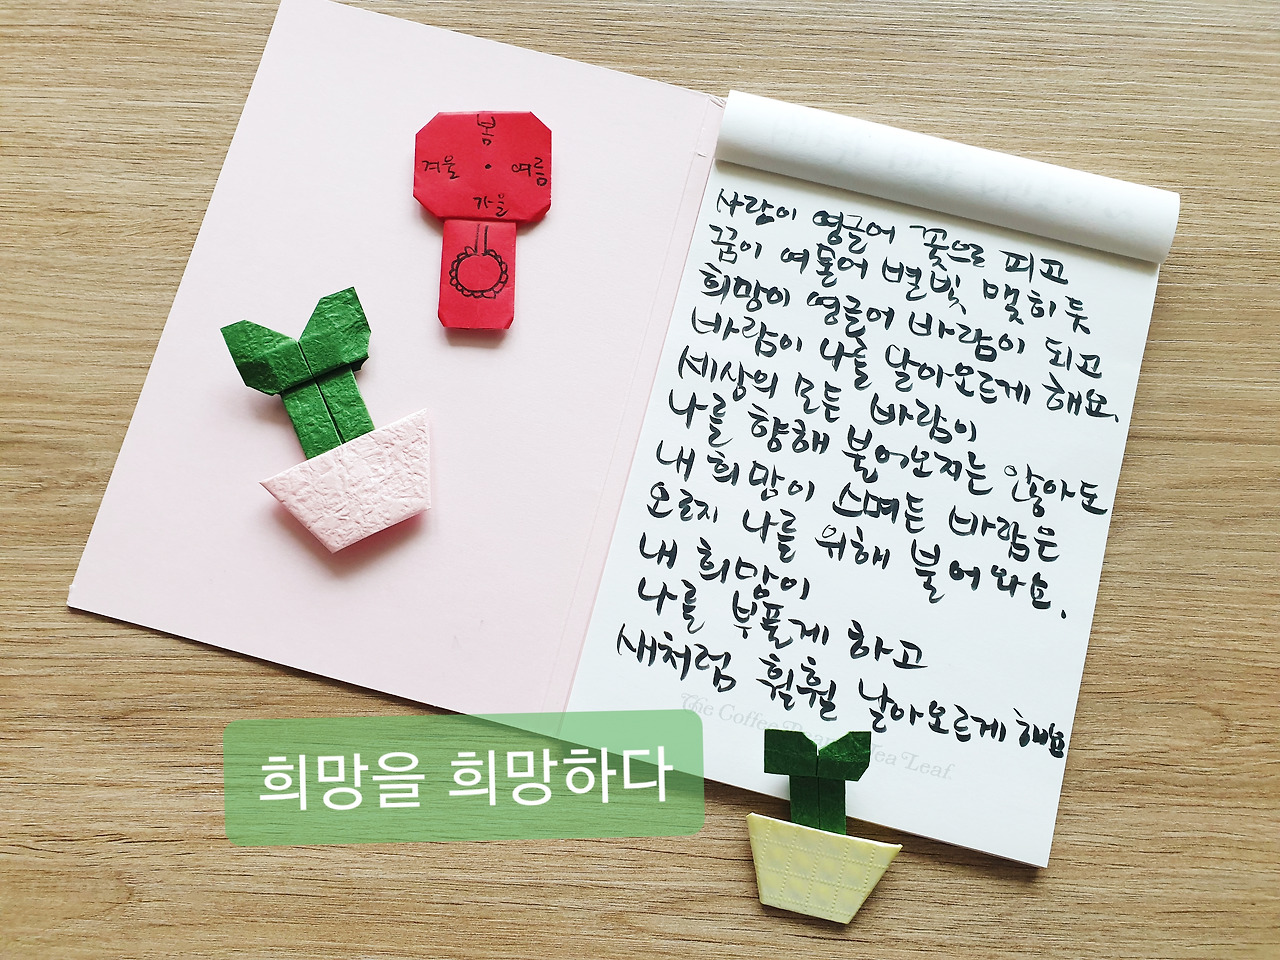 봄
겨울 여름
가을
사람이 영글어 꽃으로 피고
꿈이 여물어 별빛 맺히듯
희망이 영글어 바람이 되고
바람이 나를 날아오르게 해요.
세상의 모든 바람이
나를 향해 불어오지는 않아도
내 희망이 스며든 바람은
오르지 나를 위해 불어와요.
내 희망이
나를 부풀게 하고
새처럼 훨훨 날아오르게 해요
The Coffee Bean Tea Leaf
희망을 희망하다